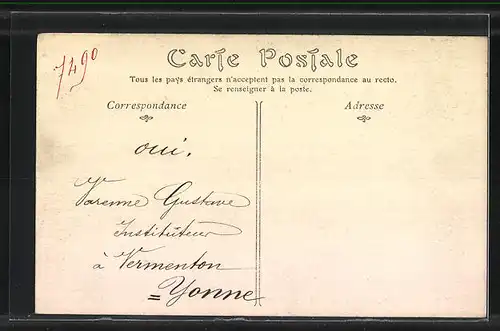 7490
Carte Postale
Tous les pays étrangers n'acceptent pas la correspondance au recto.
Se renseigner à la poste.
Correspondance
Adresse
oui.
Varenne Gustave
Instituteur
à Vermenton
= Yonne